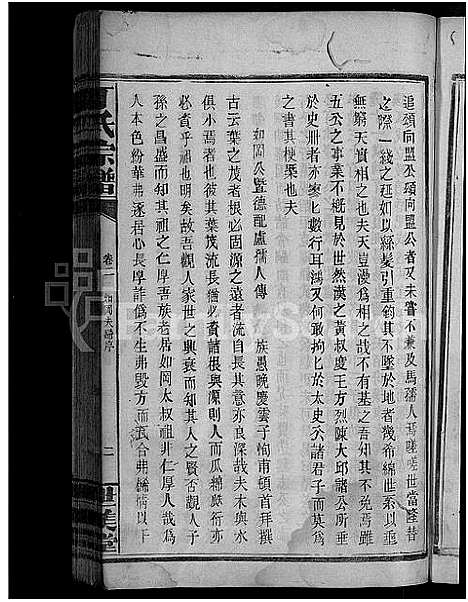 追頌向盟公頌向盟公者又未嘗不兼及馬孺人焉嗟嗟世當隆替
之際一綫之延如以絲髮引重鈞其不墜於地者幾希綿世系以亟
無窮天實相之也夫天豈漫為相之哉不有基之吾知其不免焉雖
五公之事業不槪見於世然漢之黃叔度王方烈陳大邱諸公所垂
於史冊者亦寥匕數行耳鴻又何敢拘匕於太史公諸君子而莫為
之書其梗槩也夫
如岡公暨德配盧孺人傳
族愚晚慶雲子恂甫頓首拜撰
古云葉之茂者根必固源之遠者流自長其意亦良深哉夫木與水
俱小焉者也彼其葉茂流長猶必資諸根與源則人而瓜綿蕨衍亦
必資乎祖也明矣故吾觀人家世之興衰而知其人之賢否觀人子
孫之昌盛而知其祖之仁厚吾族者居如岡太叔祖非仁厚人哉為
人本色紛華弗逐君心長厚詐僞不生弗毀方而瓦合弗矯情以干
氏宗譜
卷二
如岡夫婦序
二